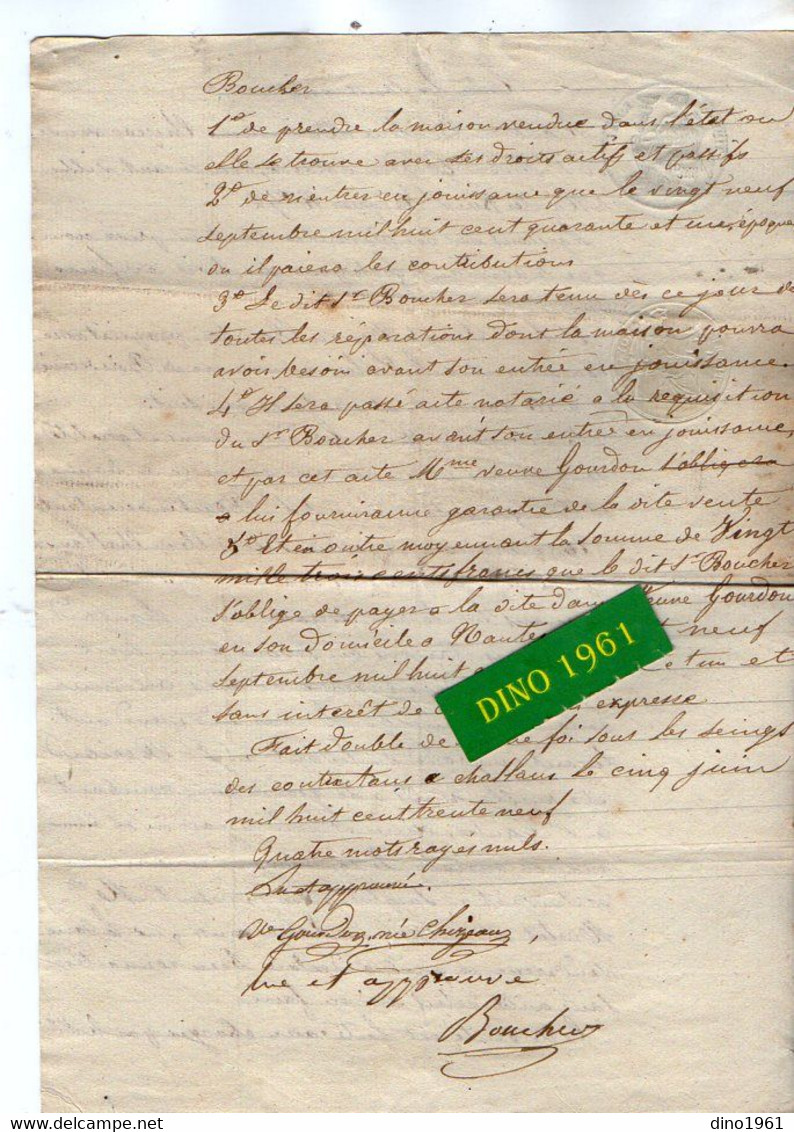 Boucher
1º de prendre la maison vendue dans l'état ou
elle se trouve avec ses droits actifs et passifs
2º de n'entrer en jouissance que le vingt neuf
septembre mil huit cent quarante et un, époque
ou il paiera les contributions
3º Le dit Sr Boucher sera tenu dès ce jour de
toutes les réparations dont la maison pourra
avoir besoin avant son entrée en jouissance.
4º Il sera passé acte notarié a la requisition
du Sr Boucher avant son entrée en jouissance,
et par cet acte Mme veuve Gourdon s'obligera
a lui fournir garantie de la dite vente
5º Et en outre moyennant la somme de Vingt
mille trois cents francs que le dit Sr Boucher
s'oblige de payer a la dite dame Veuve Gourdon
en son domicile a Nantes neuf
septembre mil huit et un et
sans interêt de expresse
Fait double de foi sous les seings
des contractans a challans le cinq juin
mil huit cent trente neuf
Quatre mots rayés nuls.
Lu et approuvé.
Ve Gourdon, née Chizeau,
lu et approuvé
Boucher
DINO 1961
dino1961